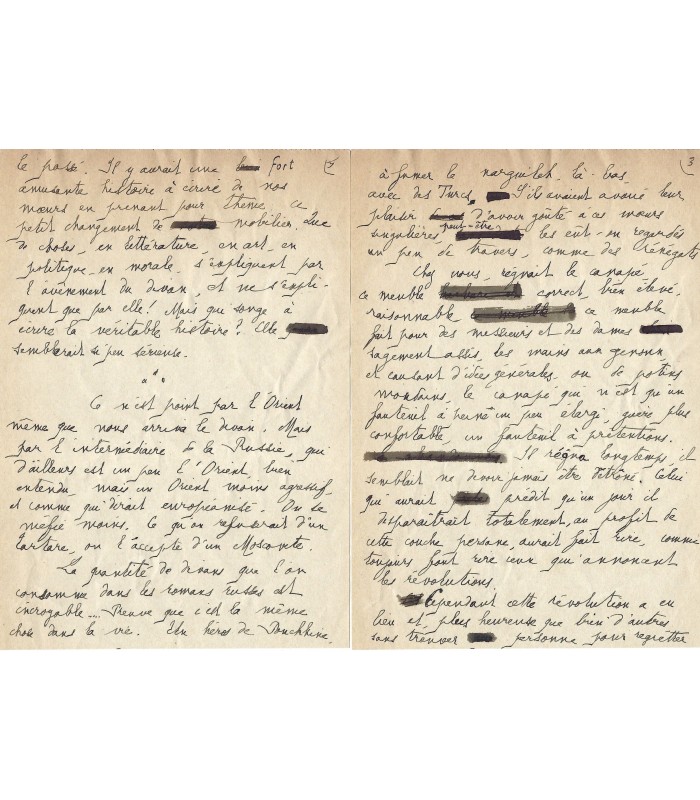 le passé. Il y aurait une fort
amusante histoire à écrire de nos
mœurs en prenant pour thème ce
petit changement de mobilier. Que
de choses, en littérature, en art, en
politique, en morale, s'expliquent par
l'avènement du divan, et ne s'expli-
quent que par elle! Mais qui songe à
écrire la véritable histoire? Elle
semblerait si peu sérieuse.
* * *
Ce n'est point par l'Orient
même que nous arriva le divan. Mais
par l'intermédiaire de la Russie, qui
d'ailleurs est un peu l'Orient, bien
entendu, mais un Orient moins agressif,
et comme qui dirait européanisé. On se
méfie moins. Ce qu'on refuserait d'un
tartare, on l'accepte d'un Moscovite.
La quantité de divans que l'on
consomme dans les romans russes est
incroyable.... Preuve que c'est la même
chose dans la vie. Un héros de Pouchkine,
3
à fumer le narguileh, là-bas
avec des Turcs. S'ils avaient avoué leur
plaisir d'avoir goûté à ces mœurs
singulières, peut-être les eût-on regardés
un peu de travers, comme des rénégats
Chez nous, régnait le canapé,
ce meuble correct, bien élevé,
raisonnable ce meuble
fait pour des messieurs et des dames
sagement assis, les mains aux genoux,
et causant d'idées générales, ou de potins
mondains, le canapé qui n'est qu'un
fauteuil à peine un peu élargi, guère plus
confortable, un fauteuil à prétentions.
Il régna longtemps, et
semblait ne devoir jamais être détrôné. Celui
qui aurait prédit qu'un jour il
disparaîtrait totalement, au profit de
cette couche persane, aurait fait rire, comme
toujours font rire ceux qui annoncent
les révolutions.
Cependant cette révolution a eu
lieu et, plus heureuse que bien d'autres
sans trouver personne pour regretter